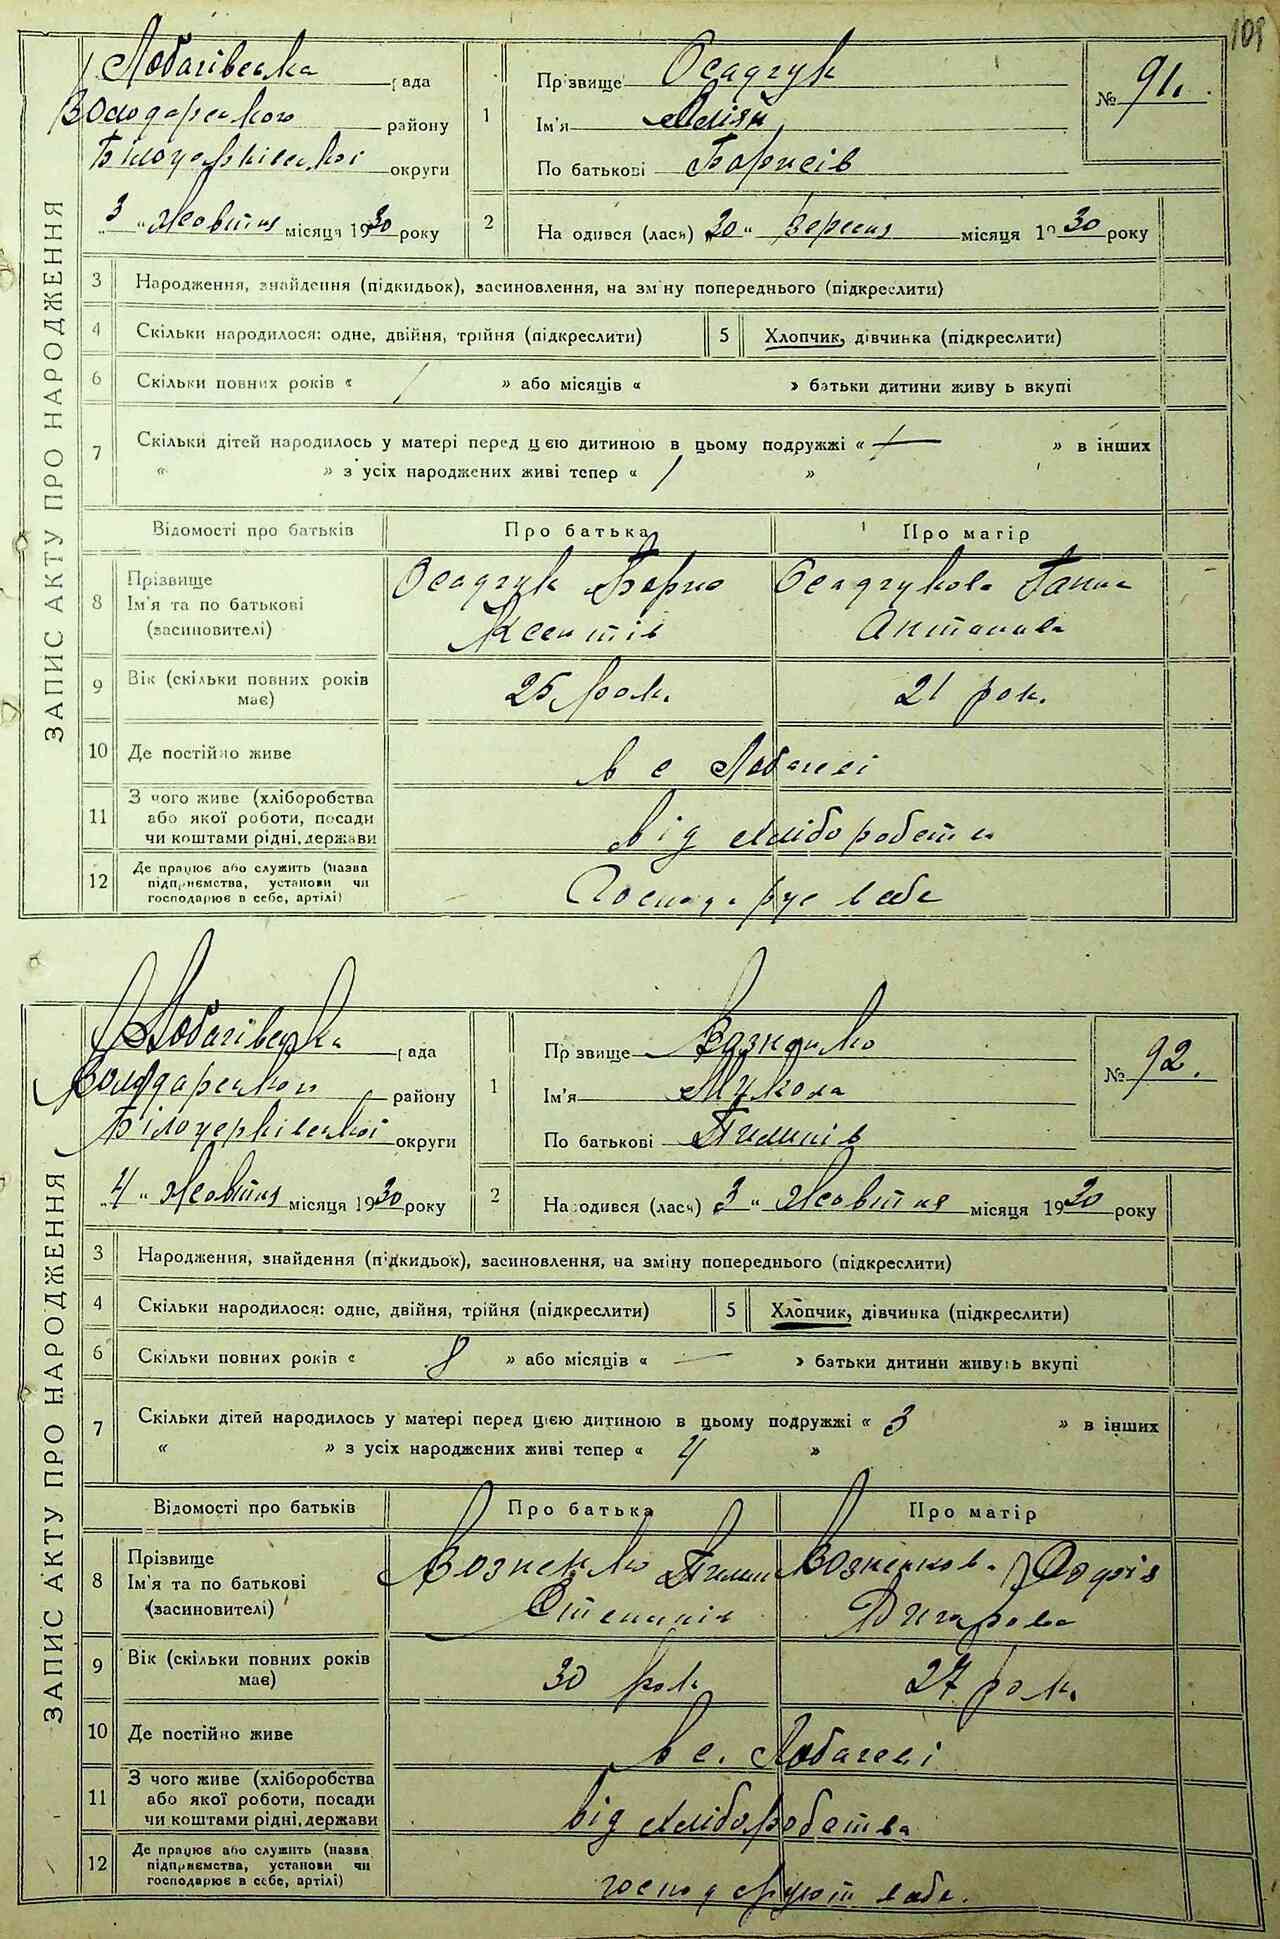 109
ЗАПИС АКТУ ПРО НАРОДЖЕННЯ
Лобачівська рада
Володарського району
Білоцерківської округи
"3" Жовтня місяця 1930 року
1
Прізвище Осадчук
Ім'я
По батькові Борисів
№ 91.
2
Народився (лася) "30" Вересня місяця 1930 року
3 Народження, знайдення (підкидьок), засиновлення, на зміну попереднього (підкреслити)
4 Скільки народилося: одне, двійня, трійня (підкреслити)
5 Хлопчик, дівчинка (підкреслити)
6 Скільки повних років « / » або місяців « » батьки дитини живуть вкупі
7 Скільки дітей народилось у матері перед цією дитиною в цьому подружжі « » в інших
« » з усіх народжених живі тепер « / »
Відомості про батьків Про батька Про матір
8 Прізвище
Ім'я та по батькові
(засиновителі)
Осадчук Борис
Осадчукова Ганна
9 Вік (скільки повних років
має)
25 рок.
21 рок.
10 Де постійно живе
в с Лобачеві
11 З чого живе (хліборобства
або якої роботи, посади
чи коштами рідні, держави
від хлібороботи
12 Де працює або служить (назва
підприємства, установи чи
господарює в себе, артілі)
Господарує в себе
ЗАПИС АКТУ ПРО НАРОДЖЕННЯ
Лобачівська рада
Володарського району
Білоцерківської округи
"4" Жовтня місяця 1930 року
1
Прізвище Возненко
Ім'я Микола
По батькові Пилипів
№ 92.
2
Народився (лася) "3" Жовтня місяця 1930 року
3 Народження, знайдення (підкидьок), засиновлення, на зміну попереднього (підкреслити)
4 Скільки народилося: одне, двійня, трійня (підкреслити)
5 Хлопчик, дівчинка (підкреслити)
6 Скільки повних років « 8 » або місяців « — » батьки дитини живуть вкупі
7 Скільки дітей народилось у матері перед цією дитиною в цьому подружжі « 3 » в інших
« » з усіх народжених живі тепер « 4 »
Відомості про батьків Про батька Про матір
8 Прізвище
Ім'я та по батькові
(засиновителі)
Возненко Пилип
Степанів
Возненкова Софія
9 Вік (скільки повних років
має)
30 рок
27 рок.
10 Де постійно живе
в с. Лобачеві
11 З чого живе (хліборобства
або якої роботи, посади
чи коштами рідні, держави
від хліборобства
12 Де працює або служить (назва
підприємства, установи чи
господарює в себе, артілі)
господарюют в себе.